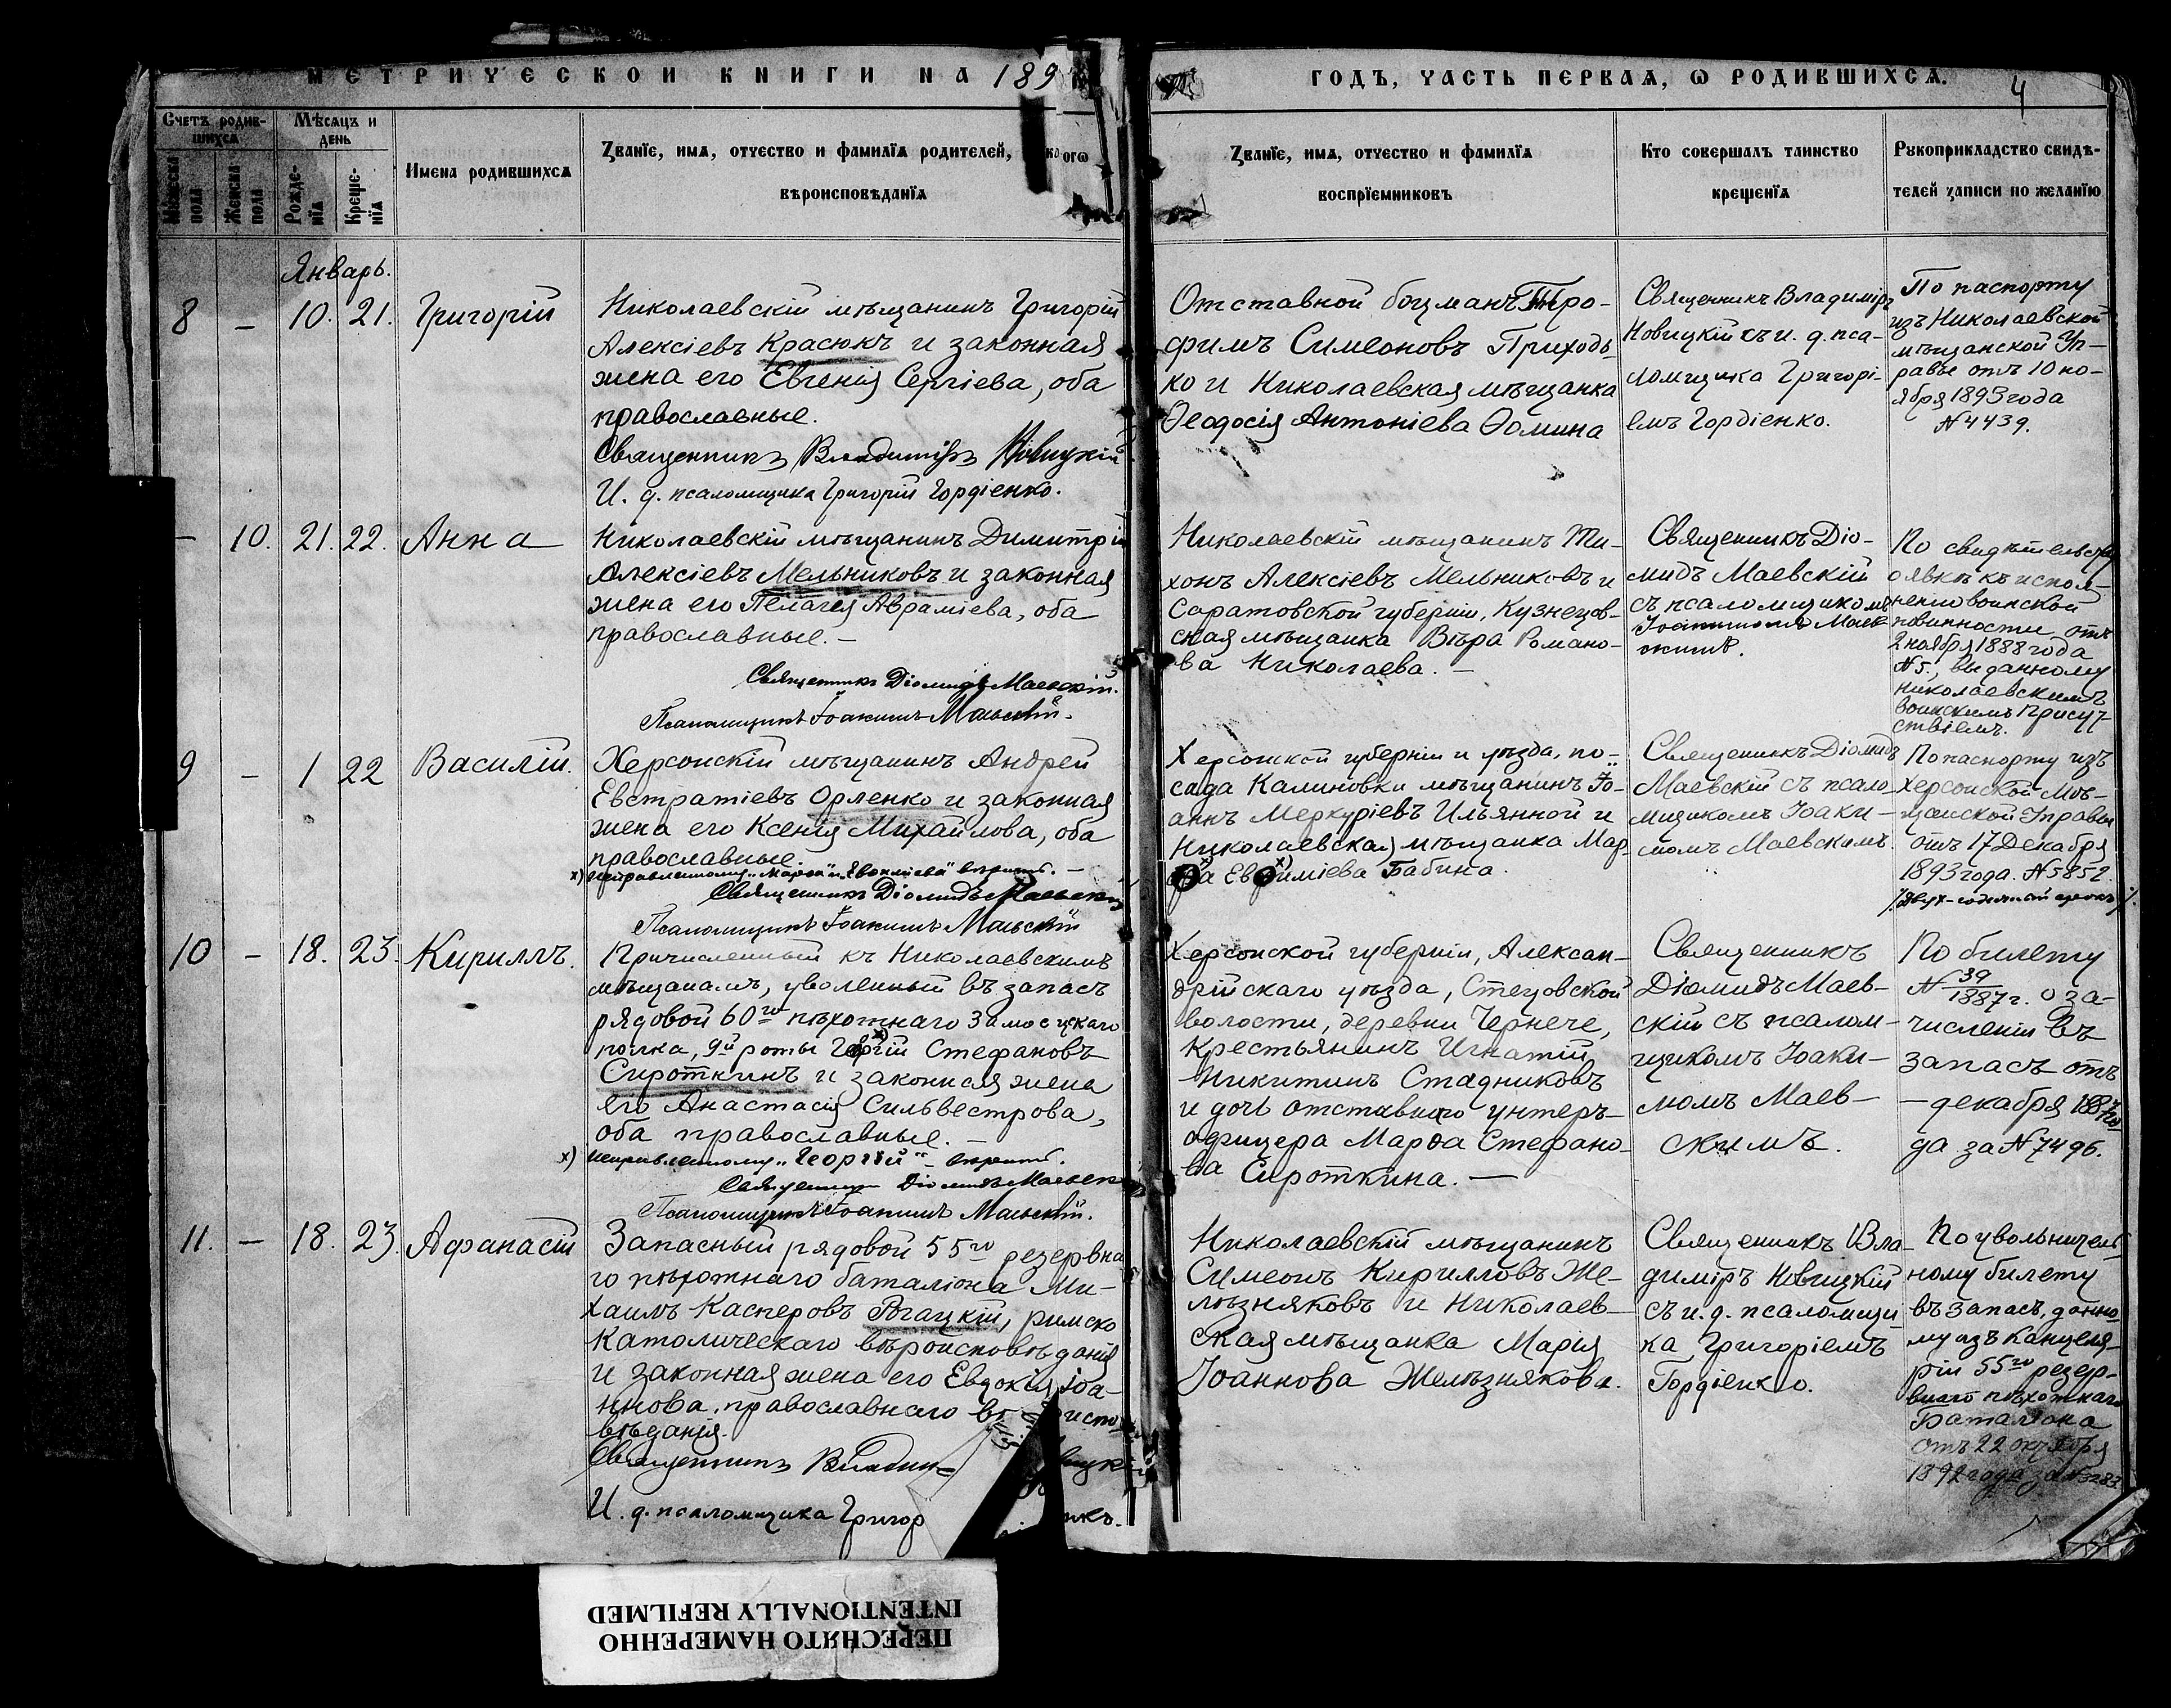 МЕТРИЧЕСКОЙ КНИГИ НА 189
ГОДЪ, ЧАСТЬ ПЕРВАЯ, Ѡ РОДИВШИХСЯ.
4
Счетъ родив-
шихся
Мѣсяцъ и
день
Мужеска
пола
Женска
пола
Рожде-
нїя
Креще-
нїя
Имена родившихся
Званїе, имя, отчество и фамилїя родителей, и ка огѡ
вѣроисповѣданїя
Званїе, имя, отчество и фамилїя
воспрїемниковъ
Кто совершалъ таинство
крещенїя
Рукоприкладство свидѣ-
телей записи по желанїю
Январь.
8 – 10. 21. Григорій
Николаевскій мѣщанинъ Григорій
Алексіевъ Красюкъ и законная
жена его Евгенія Сергіева, оба
православные.
Священникъ Владиміръ Новицкій
И. д. псаломщика Григорій Гордіенко.
Отставной боцманъ Тро-
фимъ Симеоновъ Приходь-
ко и Николаевская мѣщанка
Ѳеодосія Антоніева Ѳомина
Священникъ Владиміръ
Новицкій съ и. д. пса-
ломщика Григорі-
емъ Гордіенко.
По паспорту
изъ Николаевской
мѣщанской Уп-
равы отъ 10 но-
ября 1893 года
№ 4439.
– 10. 21. 22. Анна
Николаевскій мѣщанинъ Димитрій
Алексіевъ Мельниковъ и законная
жена его Пелагея Авраміева, оба
православные. –
Священникъ Діомидъ Маевскій.
Псаломщикъ Іоакимъ Маевскій.
Николаевскій мѣщанинъ Ти-
хонъ Алексіевъ Мельниковъ и
Саратовской губерніи, Кузнецов-
ская мѣщанка Вѣра Романо-
ва Николаева. –
Священникъ Діо-
мидъ Маевскій
съ псаломщикомъ
Іоакимомъ Маев-
скимъ.
По свидѣтельству
о явкѣ къ испол-
ненію воинской
повинности отъ
2 ноября 1888 года
№ 5., выданному
Николаевскимъ
воинскимъ Присут-
ствіемъ.
9 – 1 22 Василій.
Херсонскій мѣщанинъ Андрей
Евстратіевъ Орленко и законная
жена его Ксенія Михайлова, оба
православные.
х) исправленному „Марѳа" и „Евѳиміева" вѣрить. –
Священникъ Діомидъ Маевскій
Псаломщикъ Іоакимъ Маевскій
Херсонской губерніи и уѣзда, по-
сада Калиновки мѣщанинъ Іо-
аннъ Меркуріевъ Ильянной и
Николаевская мѣщанка Мар-
ѳа Евѳиміева Бабина.
Священникъ Діомидъ
Маевскій съ псало-
мщикомъ Іоаки-
момъ Маевскимъ.
По паспорту изъ
Херсонской Мѣ-
щанской Управы
отъ 17 Декабря
1893 года. № 5852.
10 – 18. 23. Кириллъ.
Причисленный къ Николаевскимъ
мѣщанамъ, уволенный въ запасъ
рядовой 60го пѣхотнаго Замосцкаго
полка, 9й роты Георгій Стефановъ
Сироткинъ и законная жена
его Анастасія Сильвестрова,
оба православные. –
х) исправленному „Георгій" – вѣрить.
Священникъ Діомидъ Маевскій
Псаломщикъ Іоакимъ Маевскій.
Херсонской губерніи, Алексан-
дрійскаго уѣзда, Стецовской
волости, деревни Чернече,
крестьянинъ Игнатій
Никитинъ Стадниковъ
и дочь отставного унтеръ-
офицера Марѳа Стефано-
ва Сироткина. –
Священникъ
Діомидъ Маев-
скій съ псалом-
щикомъ Іоаки-
момъ Маев-
скимъ.
По билету
№ 39/1887 г. о за-
численіи въ
запасъ отъ
– декабря 1887 го
да за № 7496.
11. – 18. 23. Афанасій
Запасный рядовой 55го резервна
го пѣхотнаго баталіона Ми-
хаилъ Касперовъ Рагацкій, римско
католическаго вѣроисповѣданія
и законная жена его Евдокія Іоа-
ннова, православнаго вѣ испо
вѣданія.
Священникъ Владим ицкій
И. д. псаломщика Григор енко.
Николаевскій мѣщанинъ
Симеонъ Кирилловъ Же-
лѣзняковъ и Николаев-
ская мѣщанка Марія
Іоаннова Желѣзнякова.
Священникъ Вла-
диміръ Новицкій
съ и. д. псаломщи-
ка Григоріемъ
Гордіенко.
По увольнитель-
ному билету
въ запасъ, данно-
му изъ канцеля-
ріи 55го резер-
внаго пѣхотнаго
Баталіона
отъ 22 октября
1892 года за № 3283
ПЕРЕСНЯТО НАМЕРЕННО
INTENTIONALLY REFILMED